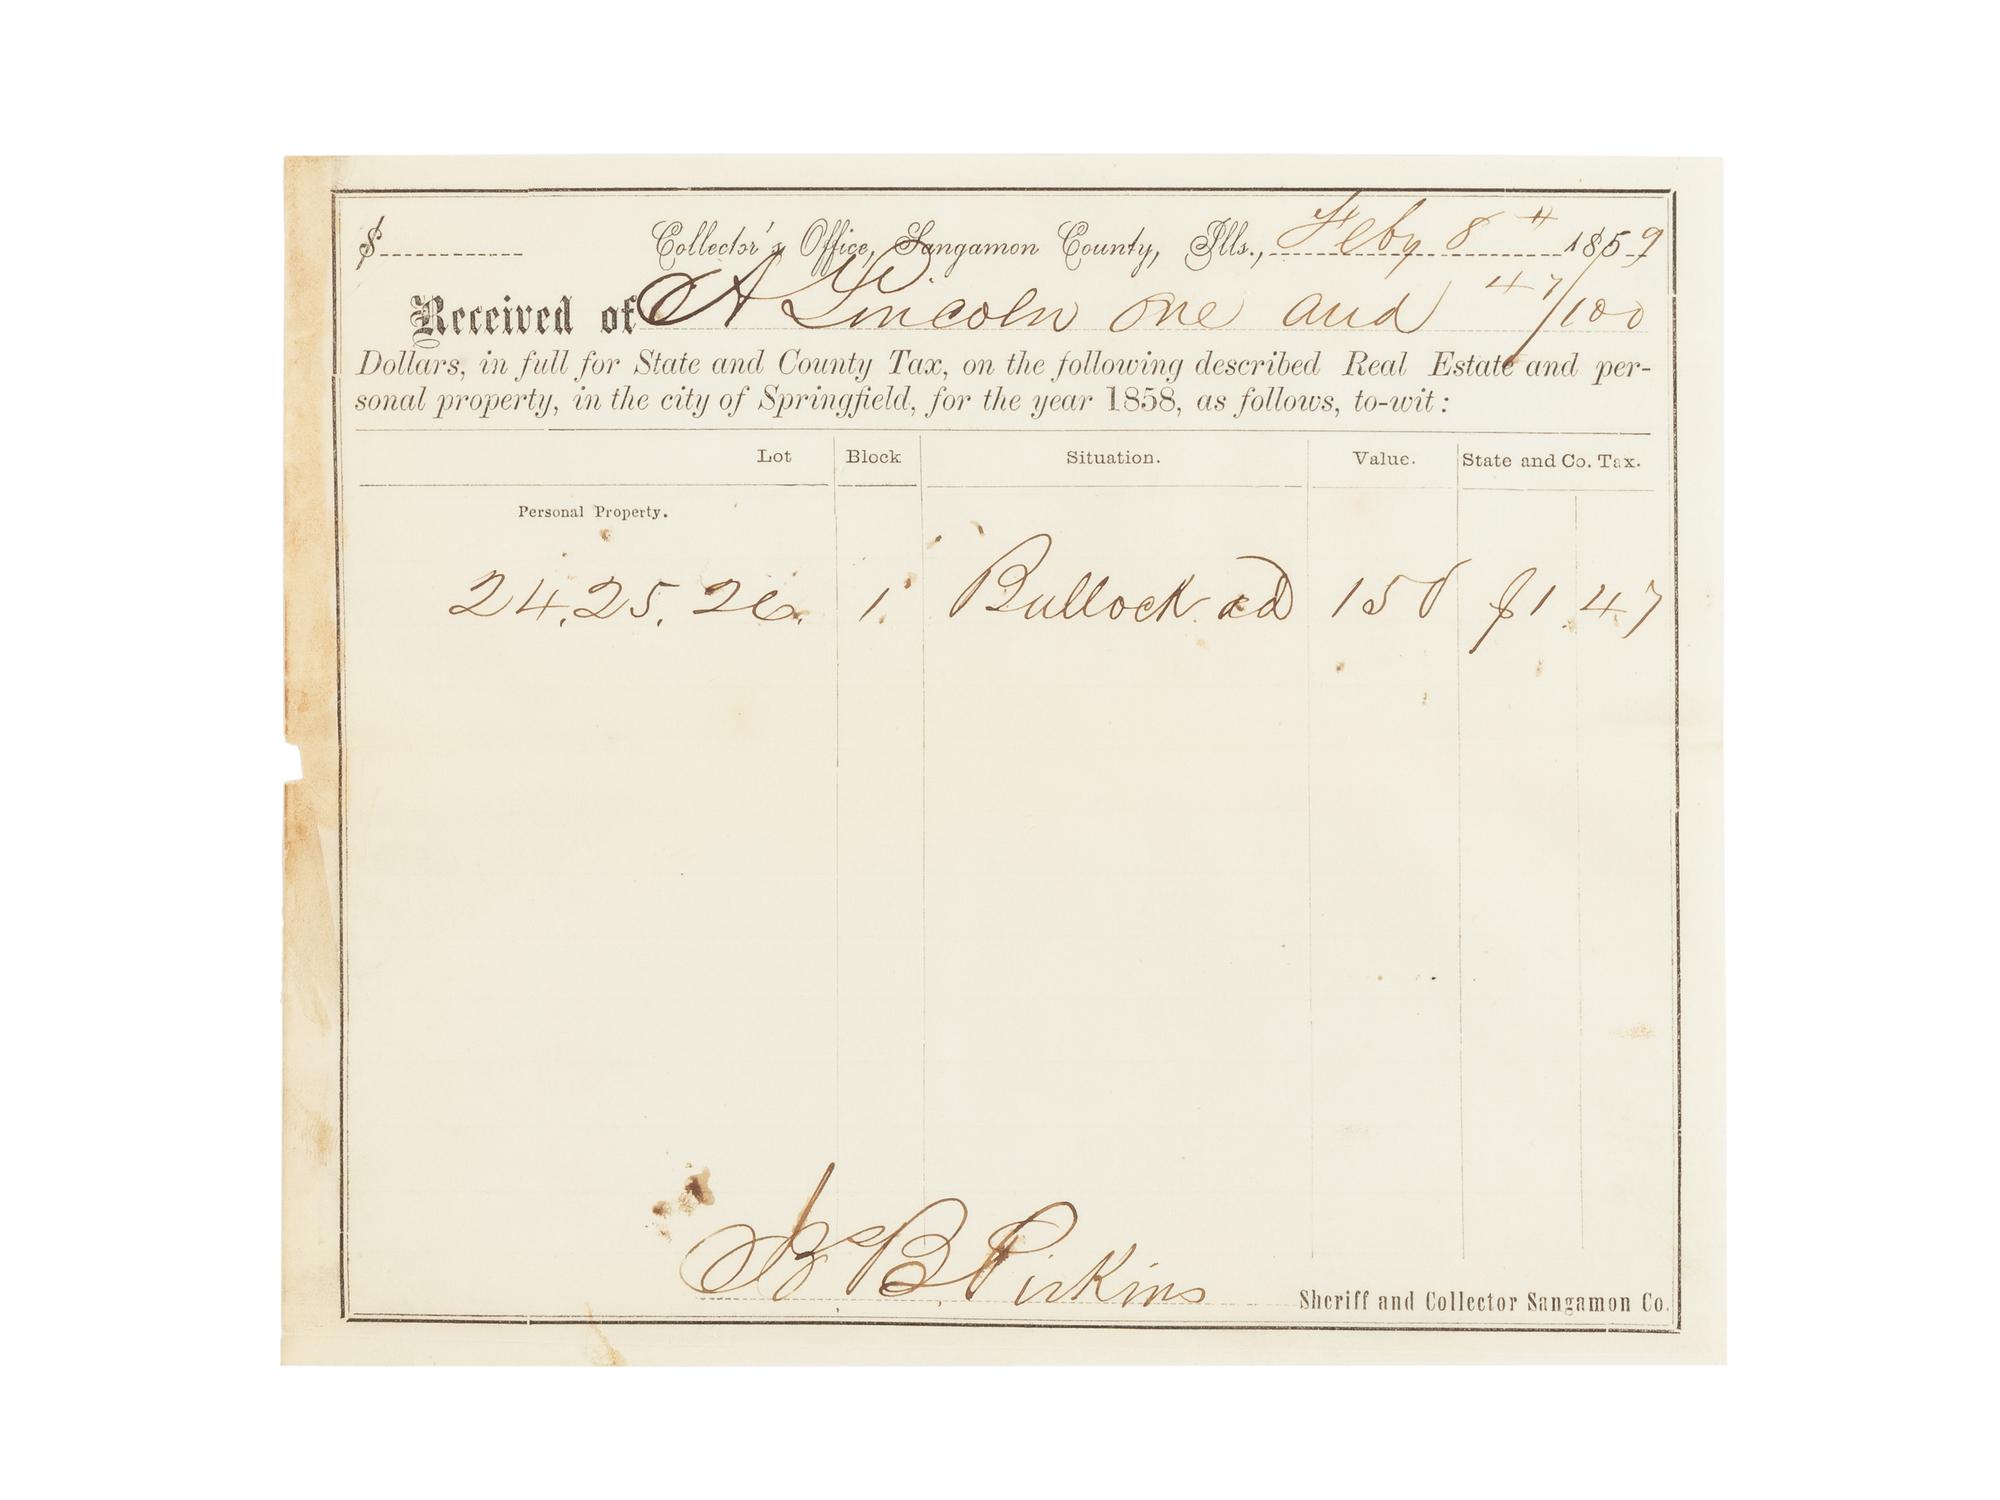 $ Collector's Office, Sangamon County, Ills., Feby 8th 1859
Received of A Lincoln one and 47/100
Dollars, in full for State and County Tax, on the following described Real Estate and per-
sonal property, in the city of Springfield, for the year 1858, as follows, to-wit:
Lot Block Situation. Value. State and Co. Tax.
Personal Property.
24, 25, 26. 1 Bullock ad 150 $1 47
B Pirkins
Sheriff and Collector Sangamon Co.